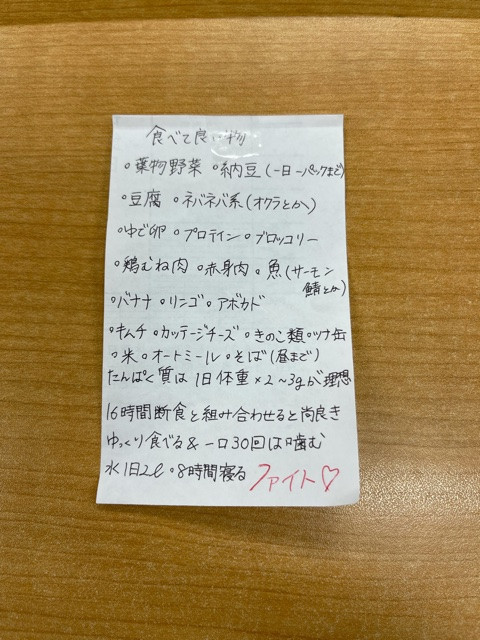 食べて良い物
。葉物野菜 。納豆(一日一パックまで)
。豆腐 。ネバネバ系(オクラとか)
。ゆで卵 。プロテイン 。ブロッコリー
。鶏むね肉 。赤身肉 。魚(サーモン
鯖とか)
。バナナ 。リンゴ 。アボカド
。キムチ 。カッテージチーズ 。きのこ類 。ツナ缶
。米 。オートミール 。そば(昼まで)
たんぱく質は1日体重×2~3gが理想
16時間断食と組み合わせると尚良き
ゆっくり食べる&一口30回は噛む
水1日2ℓ 。8時間寝る ファイト♡